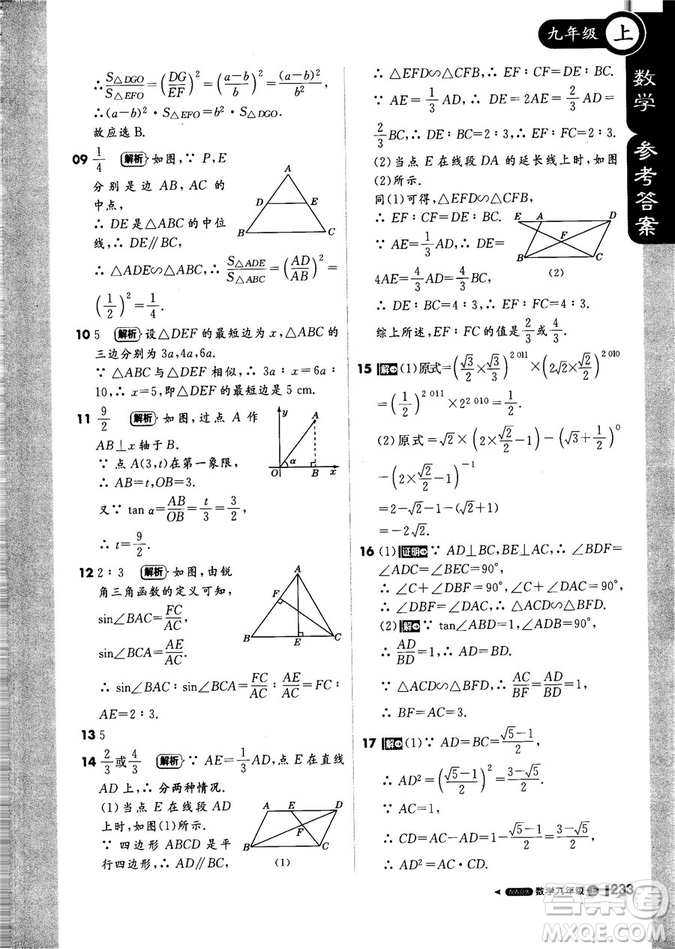 九年级 上
数学 参考答案
∴ S△DGO/S△EFO=(DG/EF)²=((a-b)/b)²=(a-b)²/b²,
∴(a-b)²·S△EFO=b²·S△DGO.
故应选B.
09 1/4 解析 如图,∵P,E
分别是边AB,AC的
中点,
∴DE是△ABC的中位
线,∴DE∥BC,
A
D E
B C
∴△ADE∽△ABC,∴S△ADE/S△ABC=(AD/AB)²
=(1/2)²=1/4.
10 5 解析 设△DEF的最短边为x,△ABC的
三边分别为3a,4a,6a.
∵△ABC与△DEF相似,∴3a∶x=6a∶
10,∴x=5,即△DEF的最短边是5 cm.
11 9/2 解析 如图,过点A作
AB⊥x轴于B.
∵点A(3,t)在第一象限,
∴AB=t,OB=3.
又∵tan α=AB/OB=t/3=3/2,
∴t=9/2.
y A
O α B x
12 2∶3 解析 如图,由锐
角三角函数的定义可知,
sin∠BAC=FC/AC,
sin∠ABC=AE/AC,
A
F
B E C
∴sin∠BAC∶sin∠ABC=FC∶
AE=2∶3.
13 5
14 2/3或4/3 解析 ∵AE=1/3AD,点E在直线
AD上,∴分两种情况.
(1)当点E在线段AD
上时,如图(1)所示.
∵四边形ABCD是平
行四边形,∴AD∥BC,
A E D
F
B C
(1)
∴△EFD∽△CFB,∴EF∶CF=DE∶BC.
∵AE=1/3AD,∴DE=2/3AD=
2/3BC,∴DE∶BC=2∶3,∴EF∶FC=2/3.
(2)当点E在线段DA的延长线上时,如图
(2)所示.
同(1)可得,△EFD∽△CFB,
∴EF∶FC=DE∶BC.
∵AE=1/3AD,∴DE=
4AE=4/3AD=4/3BC,
E A D
F
B C
(2)
∴DE∶BC=4∶3,∴EF∶FC=4/3.
综上所述,EF∶FC的值是2/3或4/3.
15 解 (1)原式=(√3/2×√3/3)^2 011×(2√2×√2/2)^2 010
=(1/2)^2 011×2^2 010=1/2.
(2)原式=√2(√2-√2/2)-(√3+1/2)^0
-(1/2)(√2/2-1/2)^-1
=2-1-1-(√2+1)
=-2√2.
16 (1)证明 ∵AD⊥BC,BE⊥AC,∴∠BDF=
∠ADC=∠BEC=90°,
∴∠C+∠DBF=90°,∠C+∠DAC=90°,
∴∠DBF=∠DAC,∴△ACD∽△BFD.
(2)解 ∵tan∠ABD=1,∠ADB=90°,
∴AD/BD=1,∴AD=BD.
∵△ACD∽△BFD,∴AC/BF=AD/BD=1,
∴BF=AC=3.
17 解 (1)∵AD=BC=(√5-1)/2,
∴AD²=((√5-1)/2)²=(3-√5)/2.
∵AC=1,
∴CD=AC-AD=1-(√5-1)/2=(3-√5)/2,
∴AD²=AC·CD.
数学九年级 233